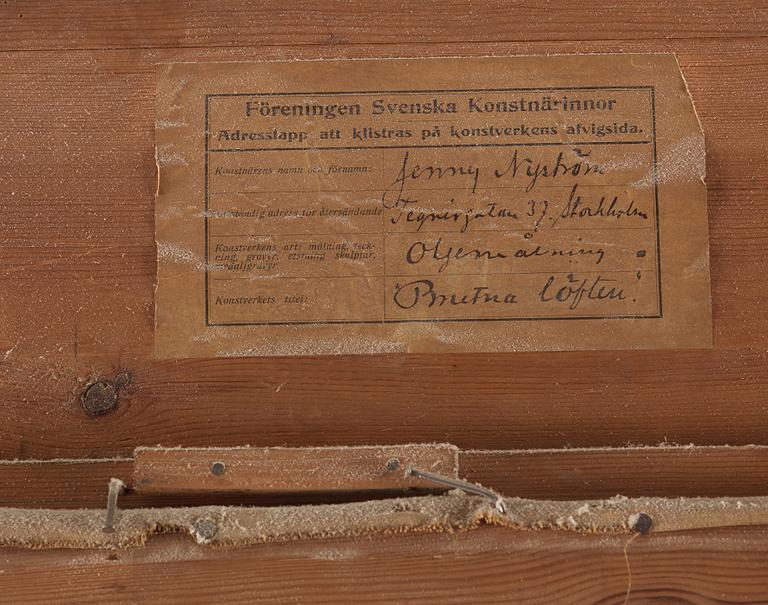 Föreningen Svenska Konstnärinnor
Adresslapp att klistras på konstverkens afvigsida.
Konstnärens namn och förnamn: Jenny Nyström
Fullständig adress för återsändande Tegnérgatan 37. Stockholm
Konstverkens art: målning, teck-
ning, gravyr, etsning skulptur,
medaljgravyr
Oljemålning
Konstverkets titel: "Brustna löften".